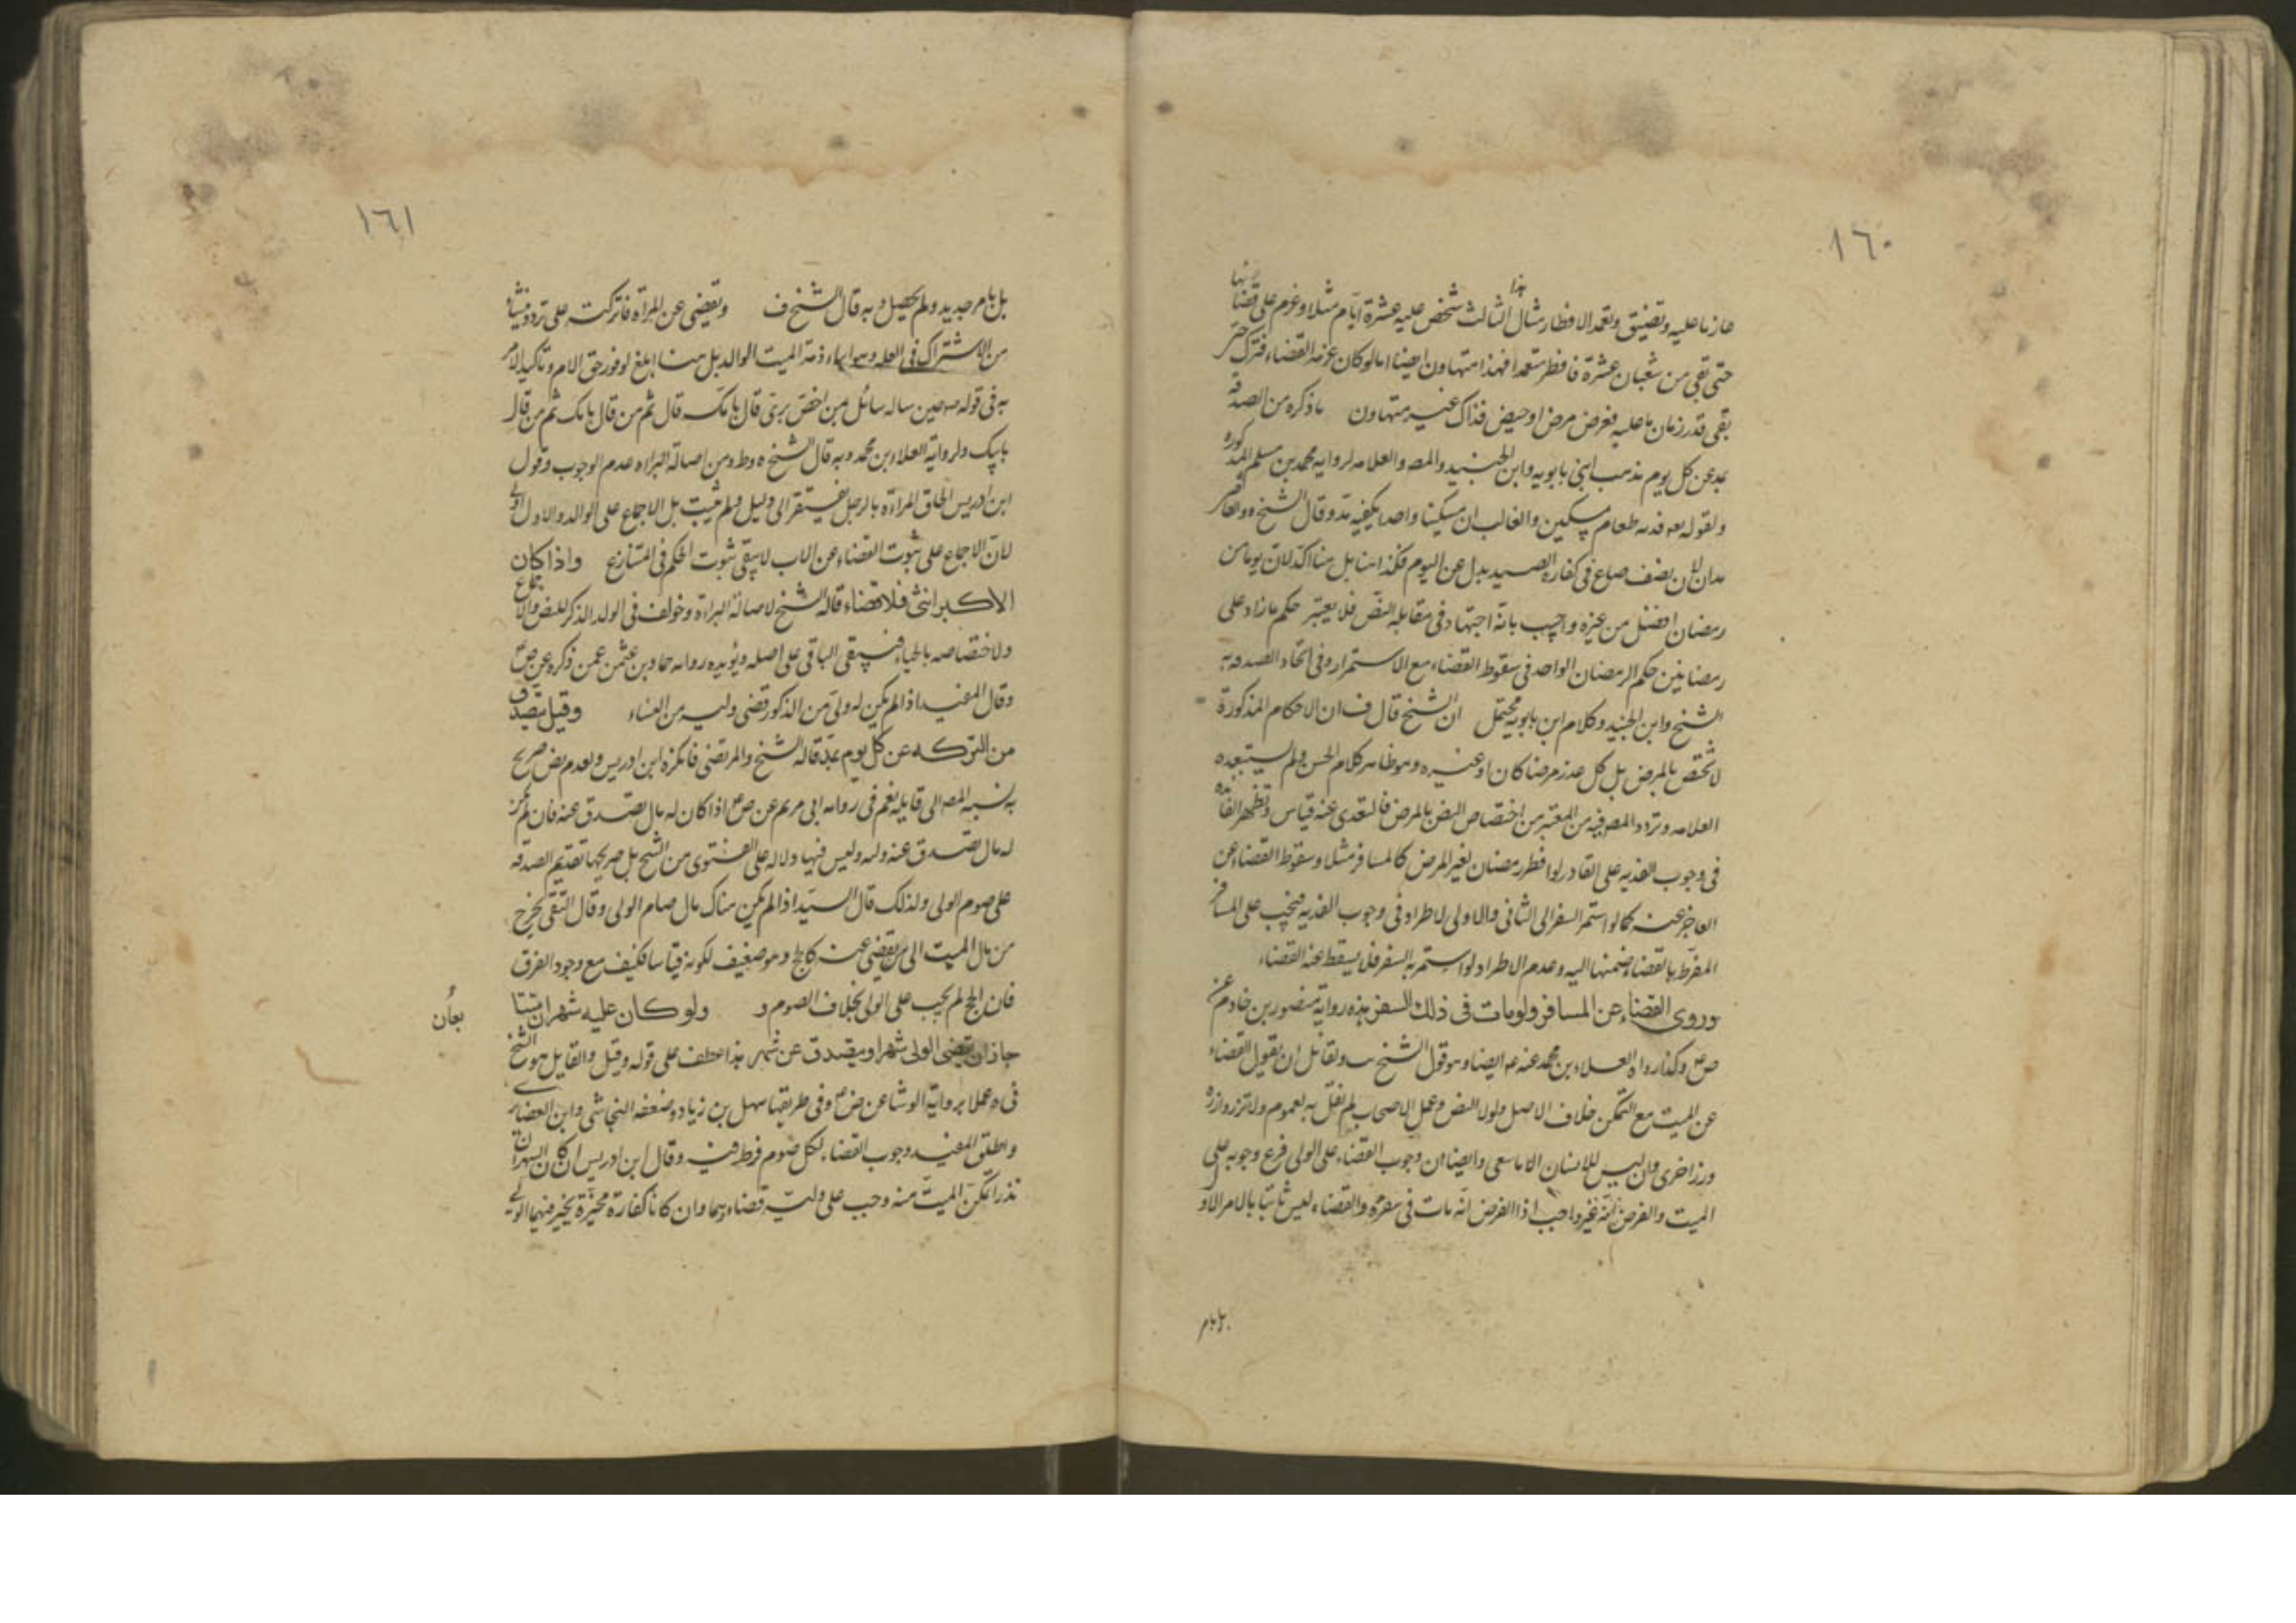 ١٦٠
ما زما عليه وتضيق وتعمد الافطار مثال هذا الثالث شخص عليه عشرة ايام مثلا وعزم على قضائها
حتى بقى من شعبان عشرة فافطر متعمدا فهذا متهاون ايضا اما لوكان عزمه القضاء فترك حتى
بقى قدر زمان ما عليه فعرض مرض او حيض فذاك غير متهاون ما ذكره من الصدقة
بمد عن كل يوم مذهب ابنى بابويه وابن الجنيد والمص والعلامه لروايه محمد بن مسلم المذكوره
ولقوله تع فديه طعام مسكين والغالب ان مسكينا واحدا يكفيه مد وقال الشيخ
مدان لان نصف صاع فى كفاره الصيد بدل عن اليوم فكذا هنا بل هنا اكد لان يوما من
رمضان افضل من غيره واجيب بانه اجتهاد فى مقابلة النص فلا يعتبر حكم ما زاد على
رمضانين حكم الرمضان الواحد فى سقوط القضاء مع الاستمرار وفى اتحاد الصدقه به
الشيخ وابن الجنيد وكلام ابن بابويه محتمل ان الشيخ قال ف ان الاحكام المذكورة
لا تختص بالمرض بل كل عذر مرضا كان او غيره وهو ظاهر كلام الحسن ولم يستبعده
العلامه وتردد المص فيه من المعتبر من اختصاص النص بالمرض فالتعدى عنه قياس وتظهر الفائده
فى وجوب الفديه على القادر لو افطر رمضان لغير المرض كالمسافر مثلا وسقوط القضاء عن
العاجز عنه كما لو استمر السفر الى الثانى والاولى لاطراد فى وجوب الفديه فتجب على المسافر
المفرط بالقضاء ضمنها اليه وعدم الاطراد لو استمر به السفر فلا يسقط عنه القضاء
وروى القضاء عن المسافر ولو مات فى ذلك السفر هذه رواية منصور بن حازم عن
ص ع وكذا رواه العلاء بن محمد عنه ع ايضا وهو قول الشيخ ب ولقائل ان يقول القضاء
عن الميت مع التمكن خلاف الاصل ولولا النص وعمل الاصحاب لم نقل به لعموم ولا تزر وازرة
وزر اخرى وان ليس للانسان الا ما سعى وايضا ان وجوب القضاء على الولى فرع وجوبه على
الميت والفرض انه غير واجب اذ الفرض انه مات فى سفره والقضاء ليس ثابتا بالامر الاول
بل بامر
١٦١
بل بامر جديد ولم يحصل وبه قال الشيخ ف وتقضى عن المراة ما تركته على تردد منشاه
من الاشتراك فى العله وهو ابراء ذمة الميت الوالد بل هنا ابلغ لوفور حق الام وتاكيد الامر
به فى قوله ص حين ساله سائل من اخص ببرى قال بامك قال ثم من قال بامك ثم من قال
بابيك ولرواية العلاء بن محمد وبه قال الشيخ ه وط ومن اصالة البراه عدم الوجوب وقول
ابن ادريس الحاق المراة بالرجل يفتقر الى دليل ولم يثبت بل الاجماع على الوالد والاول اولى
لان الاجماع على ثبوت القضاء عن الاب لا ينفى ثبوت الحكم فى المتنازع واذا كان
الاكبر انثى فلا قضاء قاله الشيخ لاصالة البراءة وخولف فى الولد الذكر للنص والاجماع
ولاختصاصه بالحباء فيبقى الباقى على اصله ويؤيده روايه حماد بن عثمن عمن ذكره عن ص
وقال المفيد اذا لم يكن له ولى من الذكور قضى وليه من النساء وقيل يتصدق
من التركه عن كل يوم بمد قاله الشيخ والمرتضى فانكره ابن ادريس ولعدم نص صريح
به نسبه المص الى قايله نعم فى روايه ابى مريم عن ص ع اذا كان له مال تصدق عنه فان لم يكن
له مال تصدق عنه وليه وليس فيها دلاله على الفتوى من الشيخ بل صريحها تقديم الصدقه
على صوم الولى ولذلك قال السيد اذا لم يكن هناك مال صام الولى وقال التقى يخرج
من مال الميت الى من يقضى عنه كالحج وهو ضعيف لكونه قياسا فكيف مع وجود الفرق
فان الحج لم يجب على الولى بخلاف الصوم و ولو كان عليه شهران متتا
بعان
جاز ان يقضى الولى شهرا ويتصدق عن شهر هذا عطف على قوله وقيل والقايل هو الشيخ
فى ه عملا برواية الوشا عن ض ع وفى طريقها سهل بن زياد وضعفه النجاشى وابن الغضايرى
واطلق المفيد وجوب القضاء لكل صوم فرط فيه وقال ابن ادريس ان كان الشهران
نذرا تمكن الميت منه وجب على وليه قضاءهما وان كانا كفارة مخيرة يخير فيهما الولى